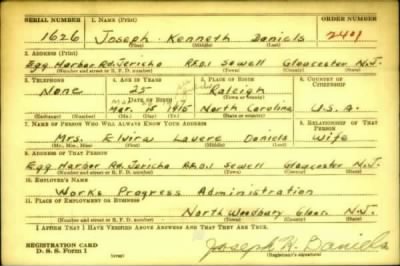 SERIAL NUMBER 1. NAME (Print) ORDER NUMBER
1626 Joseph Kenneth Daniels 2401
(First) (Middle) (Last)
2. ADDRESS (Print)
Egg Harbor Rd. Jericho R.F.D.1 Sewell Gloucester N.J.
(Number and street or R. F. D. number) (Town) (County) (State)
3. TELEPHONE 4. AGE IN YEARS 5. PLACE OF BIRTH 6. COUNTRY OF CITIZENSHIP
None 25 Raleigh
DATE OF BIRTH (Town or county)
Mar. 15 1915 North Carolina U.S.A.
(Exchange) (Number) (Mo.) (Day) (Yr.) (State or country)
7. NAME OF PERSON WHO WILL ALWAYS KNOW YOUR ADDRESS 8. RELATIONSHIP OF THAT PERSON
Mrs. Elvira Daniels Wife
(Mr., Mrs., Miss) (First) (Middle) (Last)
9. ADDRESS OF THAT PERSON
Egg Harbor Rd. Jericho R.F.D.1 Sewell Gloucester N.J.
(Number and street or R. F. D. number) (Town) (County) (State)
10. EMPLOYER'S NAME
Works Progress Administration
11. PLACE OF EMPLOYMENT OR BUSINESS
North Woodbury Glouc. N.J.
(Number and street or R. F. D. number) (Town) (County) (State)
I AFFIRM THAT I HAVE VERIFIED ABOVE ANSWERS AND THAT THEY ARE TRUE.
REGISTRATION CARD
D. S. S. Form 1 (over) Joseph K. Daniels
(Registrant's signature)